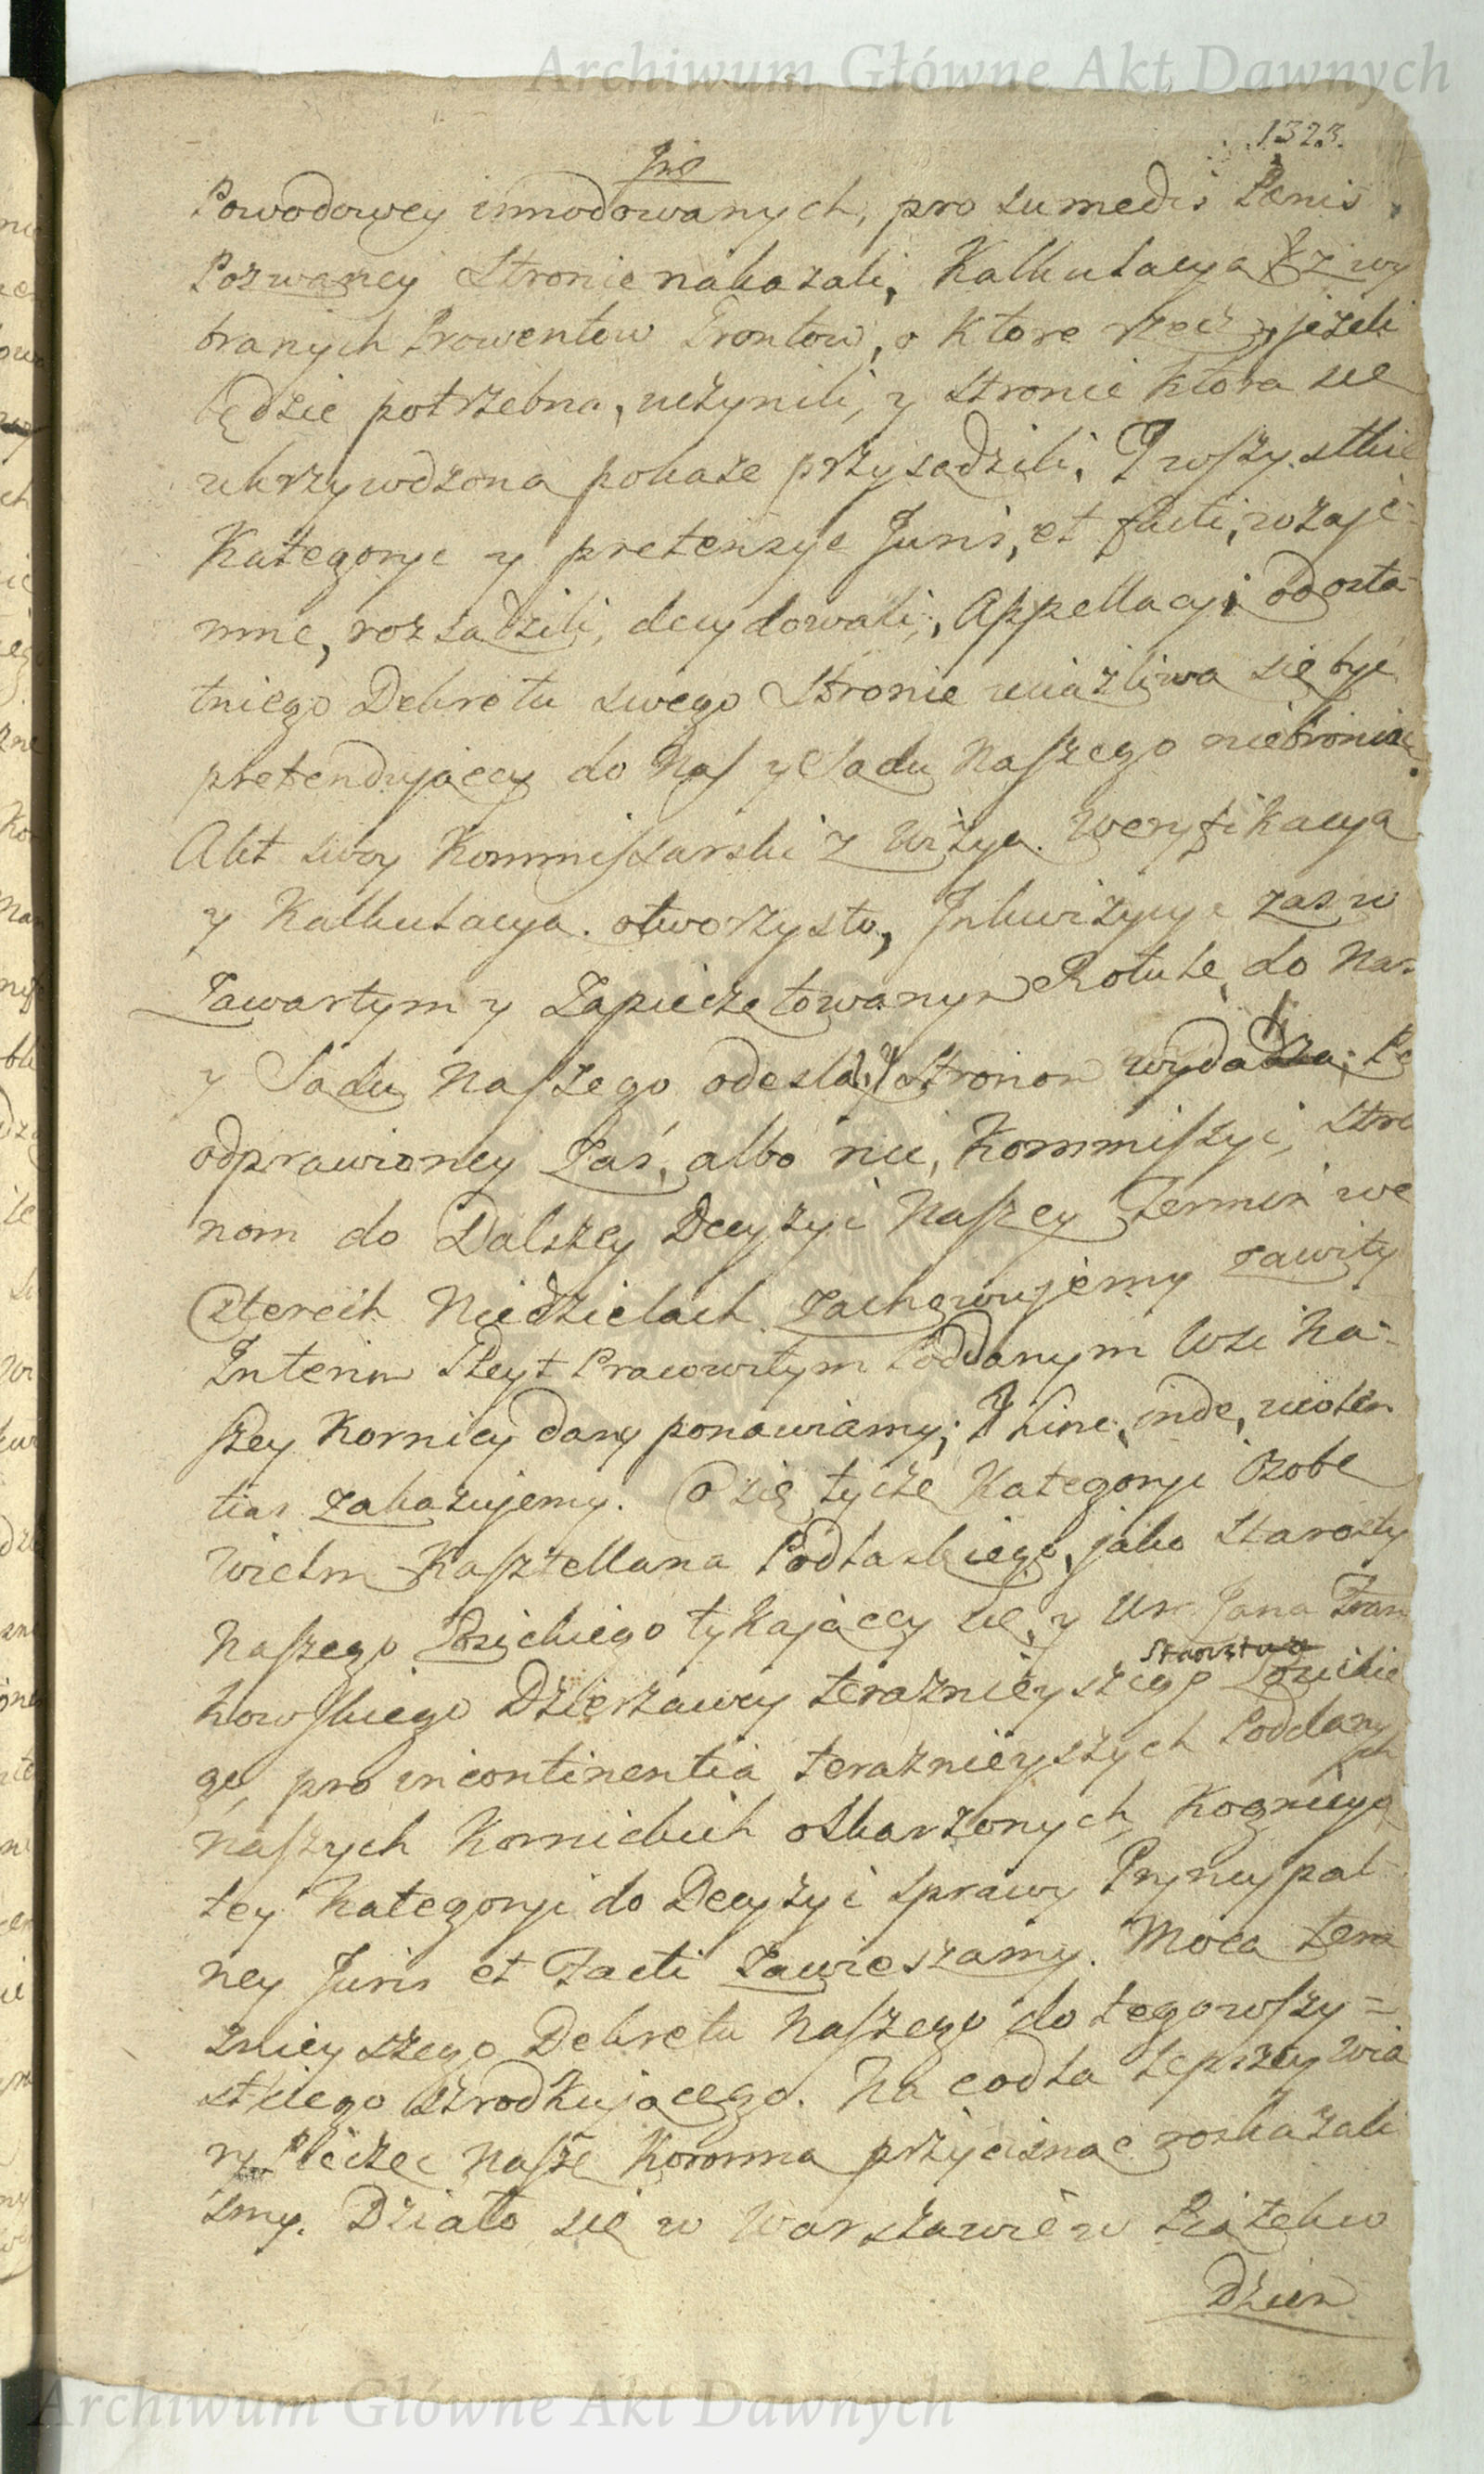 Archiwum Główne Akt Dawnych
1323.
Powodowey innodowanych, pro sumedis Pænis
Pozwaney Stronie nakazali, Kalkulacyą z wy
branych Prowentow Grontow, o ktore rzecz, jeżeli
będzie potrzebna, uczynili, y Stronie ktora się
ukrzywdzona pokaże przysądzili, I wszystkie
Kategorye y pretensye Juris, et facti, wzaje-
mne, rozsądzili, decydowali, Appellacyi od osta-
tniego Dekretu swego Stronie uciążliwą się być
pretendującey do Nas y Sądu Naszego niebroniąc.
Akt swoy Kommissarski z Wizyą. Weryfikacyą
y Kalkulacyą. otworzysto, Inkwizycye zas w
Zawartym y Zapieczętowanym Rotule, do Nas
y Sądu Naszego odesłali Stronom wydadzą; Po
odprawioney Zaś, albo nie, Kommissyi, Stro
nom do Dalszey Decyzyi Naszey Termin we
Czterech Niedzielach zachowujemy zawity
Interim Gleyt Pracowitym Poddanym Wsi Na-
szey Kornicy dany ponawiamy, I hinc, inde, violen
tias zakazujemy. Co się tycze Kategoryi Osobe
Wielm Kasztellana Podlaskiego, jako Starosty
Naszego Łosickiego tykającey się, y Ur Jana Fran
kowskiego Dzierzawcy teraznieyszego Łosickie
Starostwa
go, pro incontinentia teraznieyszych Poddany
ch
naszych Kornickich oskarzonych, Kognicyą
tey Kategoryi do Decyzyi Sprawy Pryncypal-
ney Juris et Facti Zawieszamy. Mocą tera
znieyszego Dekretu Naszego do tego wszy=
stkiego szrodkującego. Na co dla lepszey Wia
ry Pieczęć Naszę Koronną przycisnąć roskazali
smy. Działo się w Warszawie w Piątek w
Dzien
Archiwum Główne Akt Dawnych